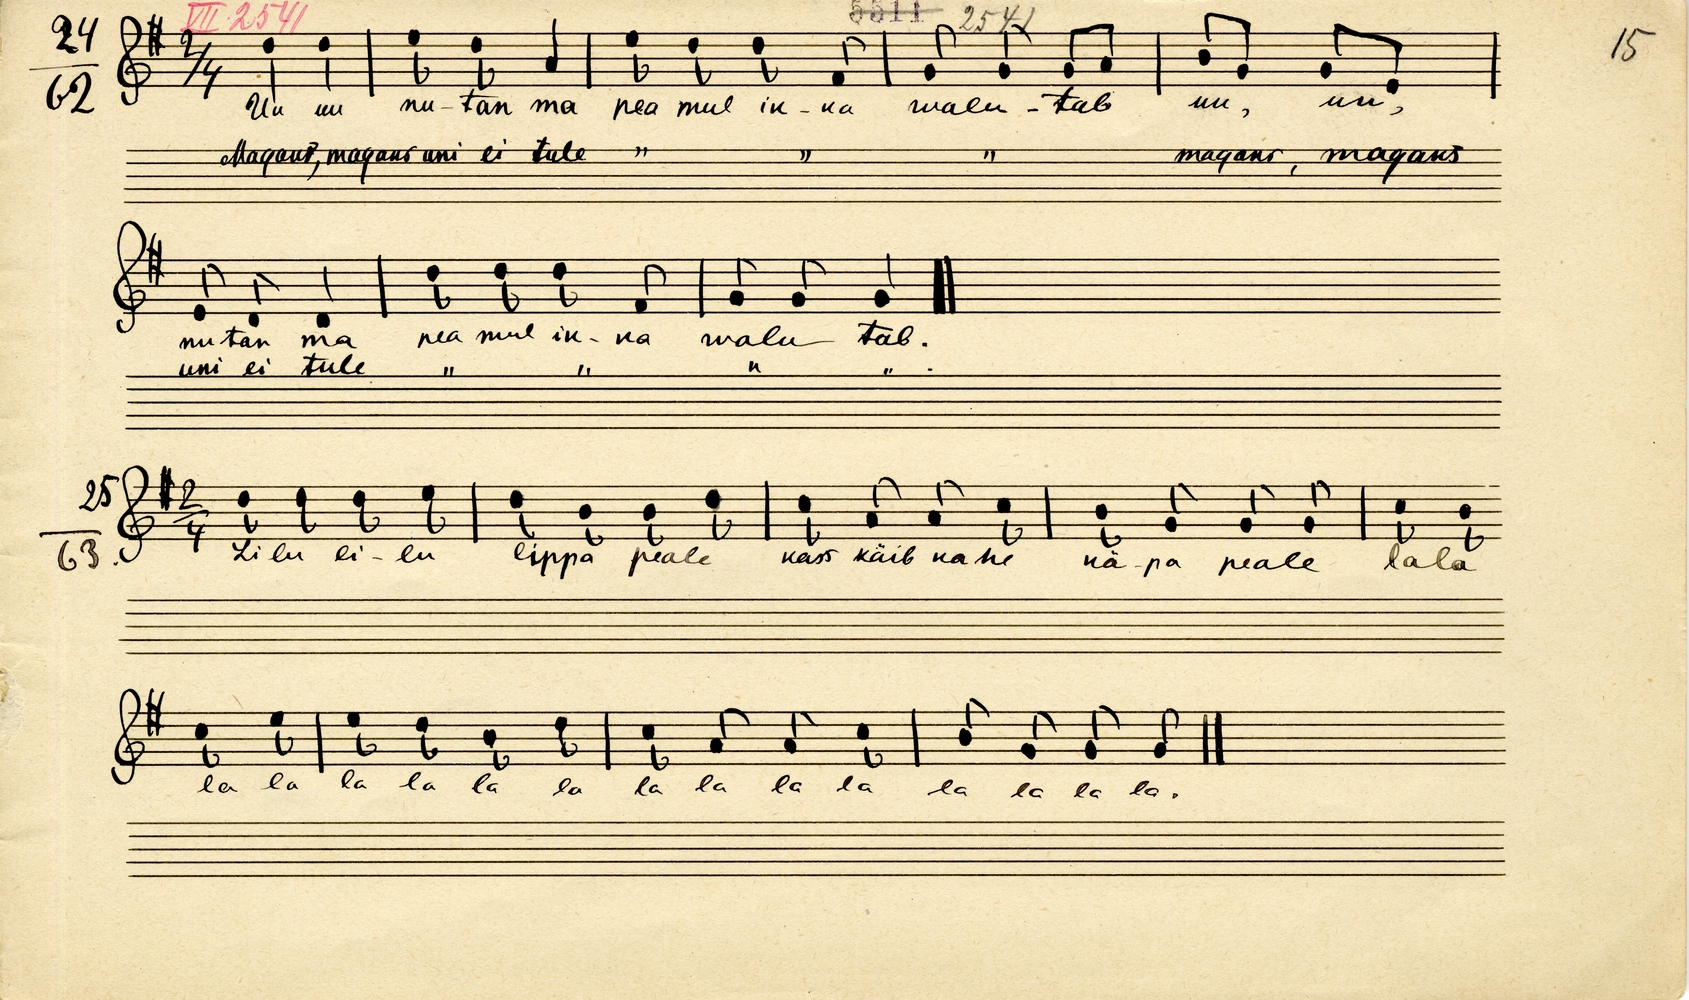 VII 2541 5511 2541
15
24
62
2/4
Uu uu nu-tan ma pea mul ik-ka walu-tab uu, uu,
Magaks, magaks uni ei tule " " " magaks, magaks
nutan ma pea mul ik-ka walu tab.
uni ei tule " " " " .
25
63.
2/4
Li lu ei-lu lippa peale kass käib kahe kä-pa peale la la
la la la la la la la la la la la la la la.